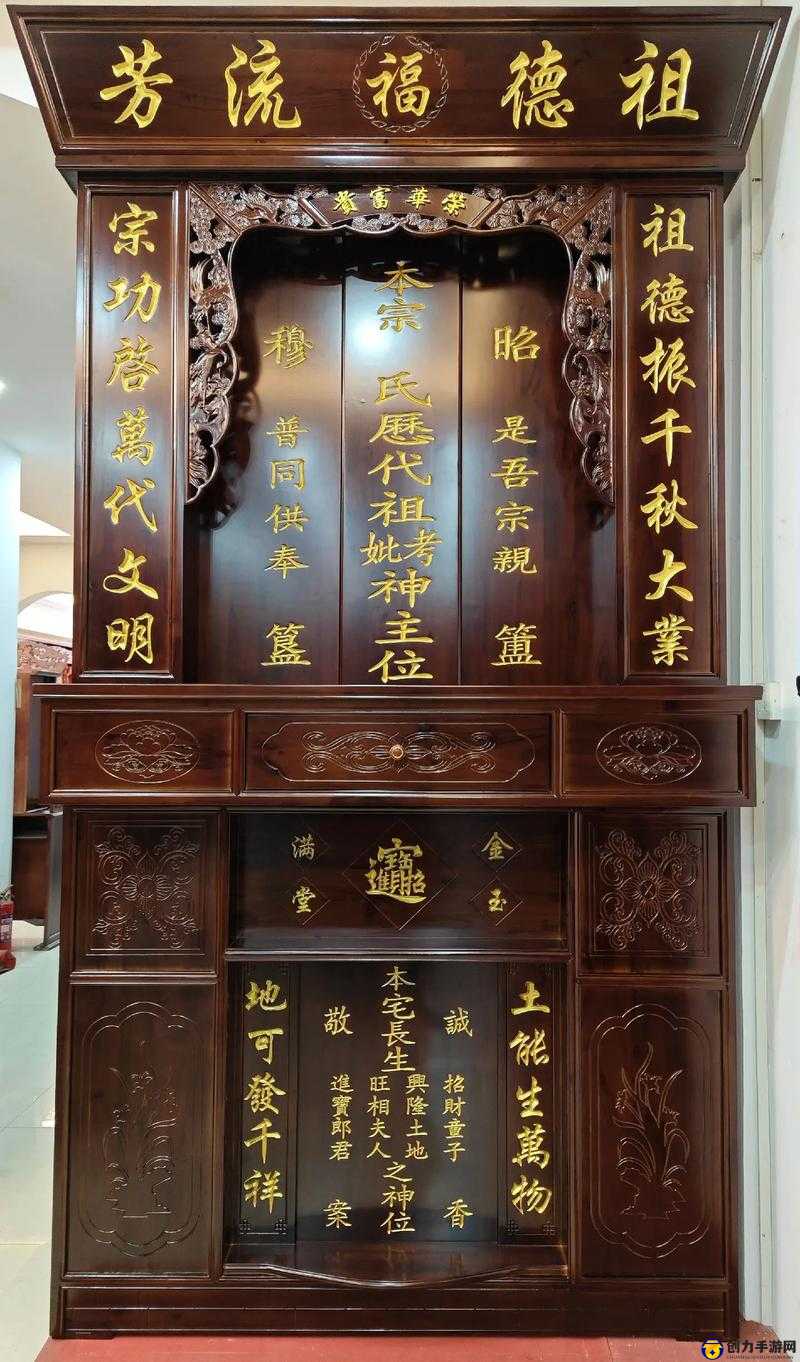 祖德福流芳
榮華富貴
祖德振千秋大業
昭是吾宗親簠
本宗 氏歷代祖考妣神主位
穆普同供奉簋
宗功啓萬代文明
金玉
招財進寶
滿堂
土能生萬物
誠招財童子香
本宅長生興隆土地旺相夫人之神位
敬進寶郎君案
地可發千祥
创力手游网